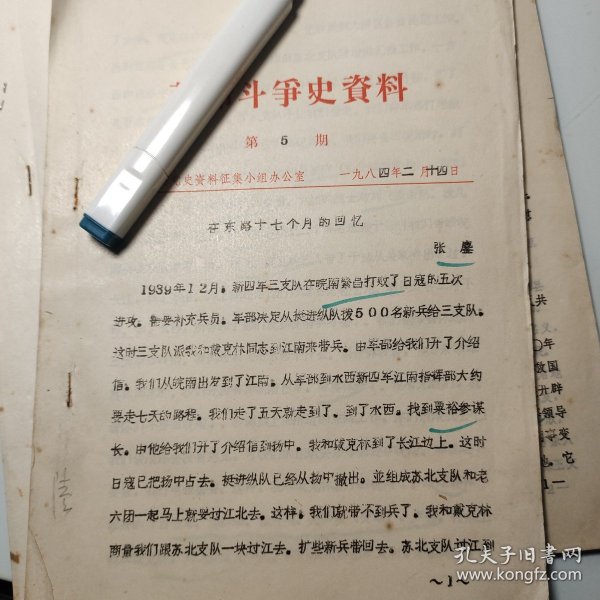 斗爭史資料
第 5 期
史资料征集小组办公室 一九八四年二月十四日
在东路十七个月的回忆
张 鏖
1939年12月。新四军三支队在皖南繁昌打败了日寇的五次
进攻。需要补充兵员。军部决定从挺进纵队拨500名新兵给三支队。
这时三支队派我和戴克林同志到江南来带兵。由军部给我们开了介绍
信。我们从皖南出发到了江南。从军部到水西新四军江南指挥部大约
要走七天的路程。我们走了五天就走到了。到了水西。找到粟裕参谋
长。由他给我们开了介绍信到扬中。我和戴克林到了长江边上。这时
日寇已把扬中占去。挺进纵队已经从扬中撤出。並组成苏北支队和老
六团一起马上就要过江北去。这样。我们就带不到兵了。我和戴克林
商量我们跟苏北支队一块过江去。扩些新兵带回去。苏北支队过江到
～1～
共
〇年
敌国
开辟
领导
变
它
1—
孔夫子旧书网